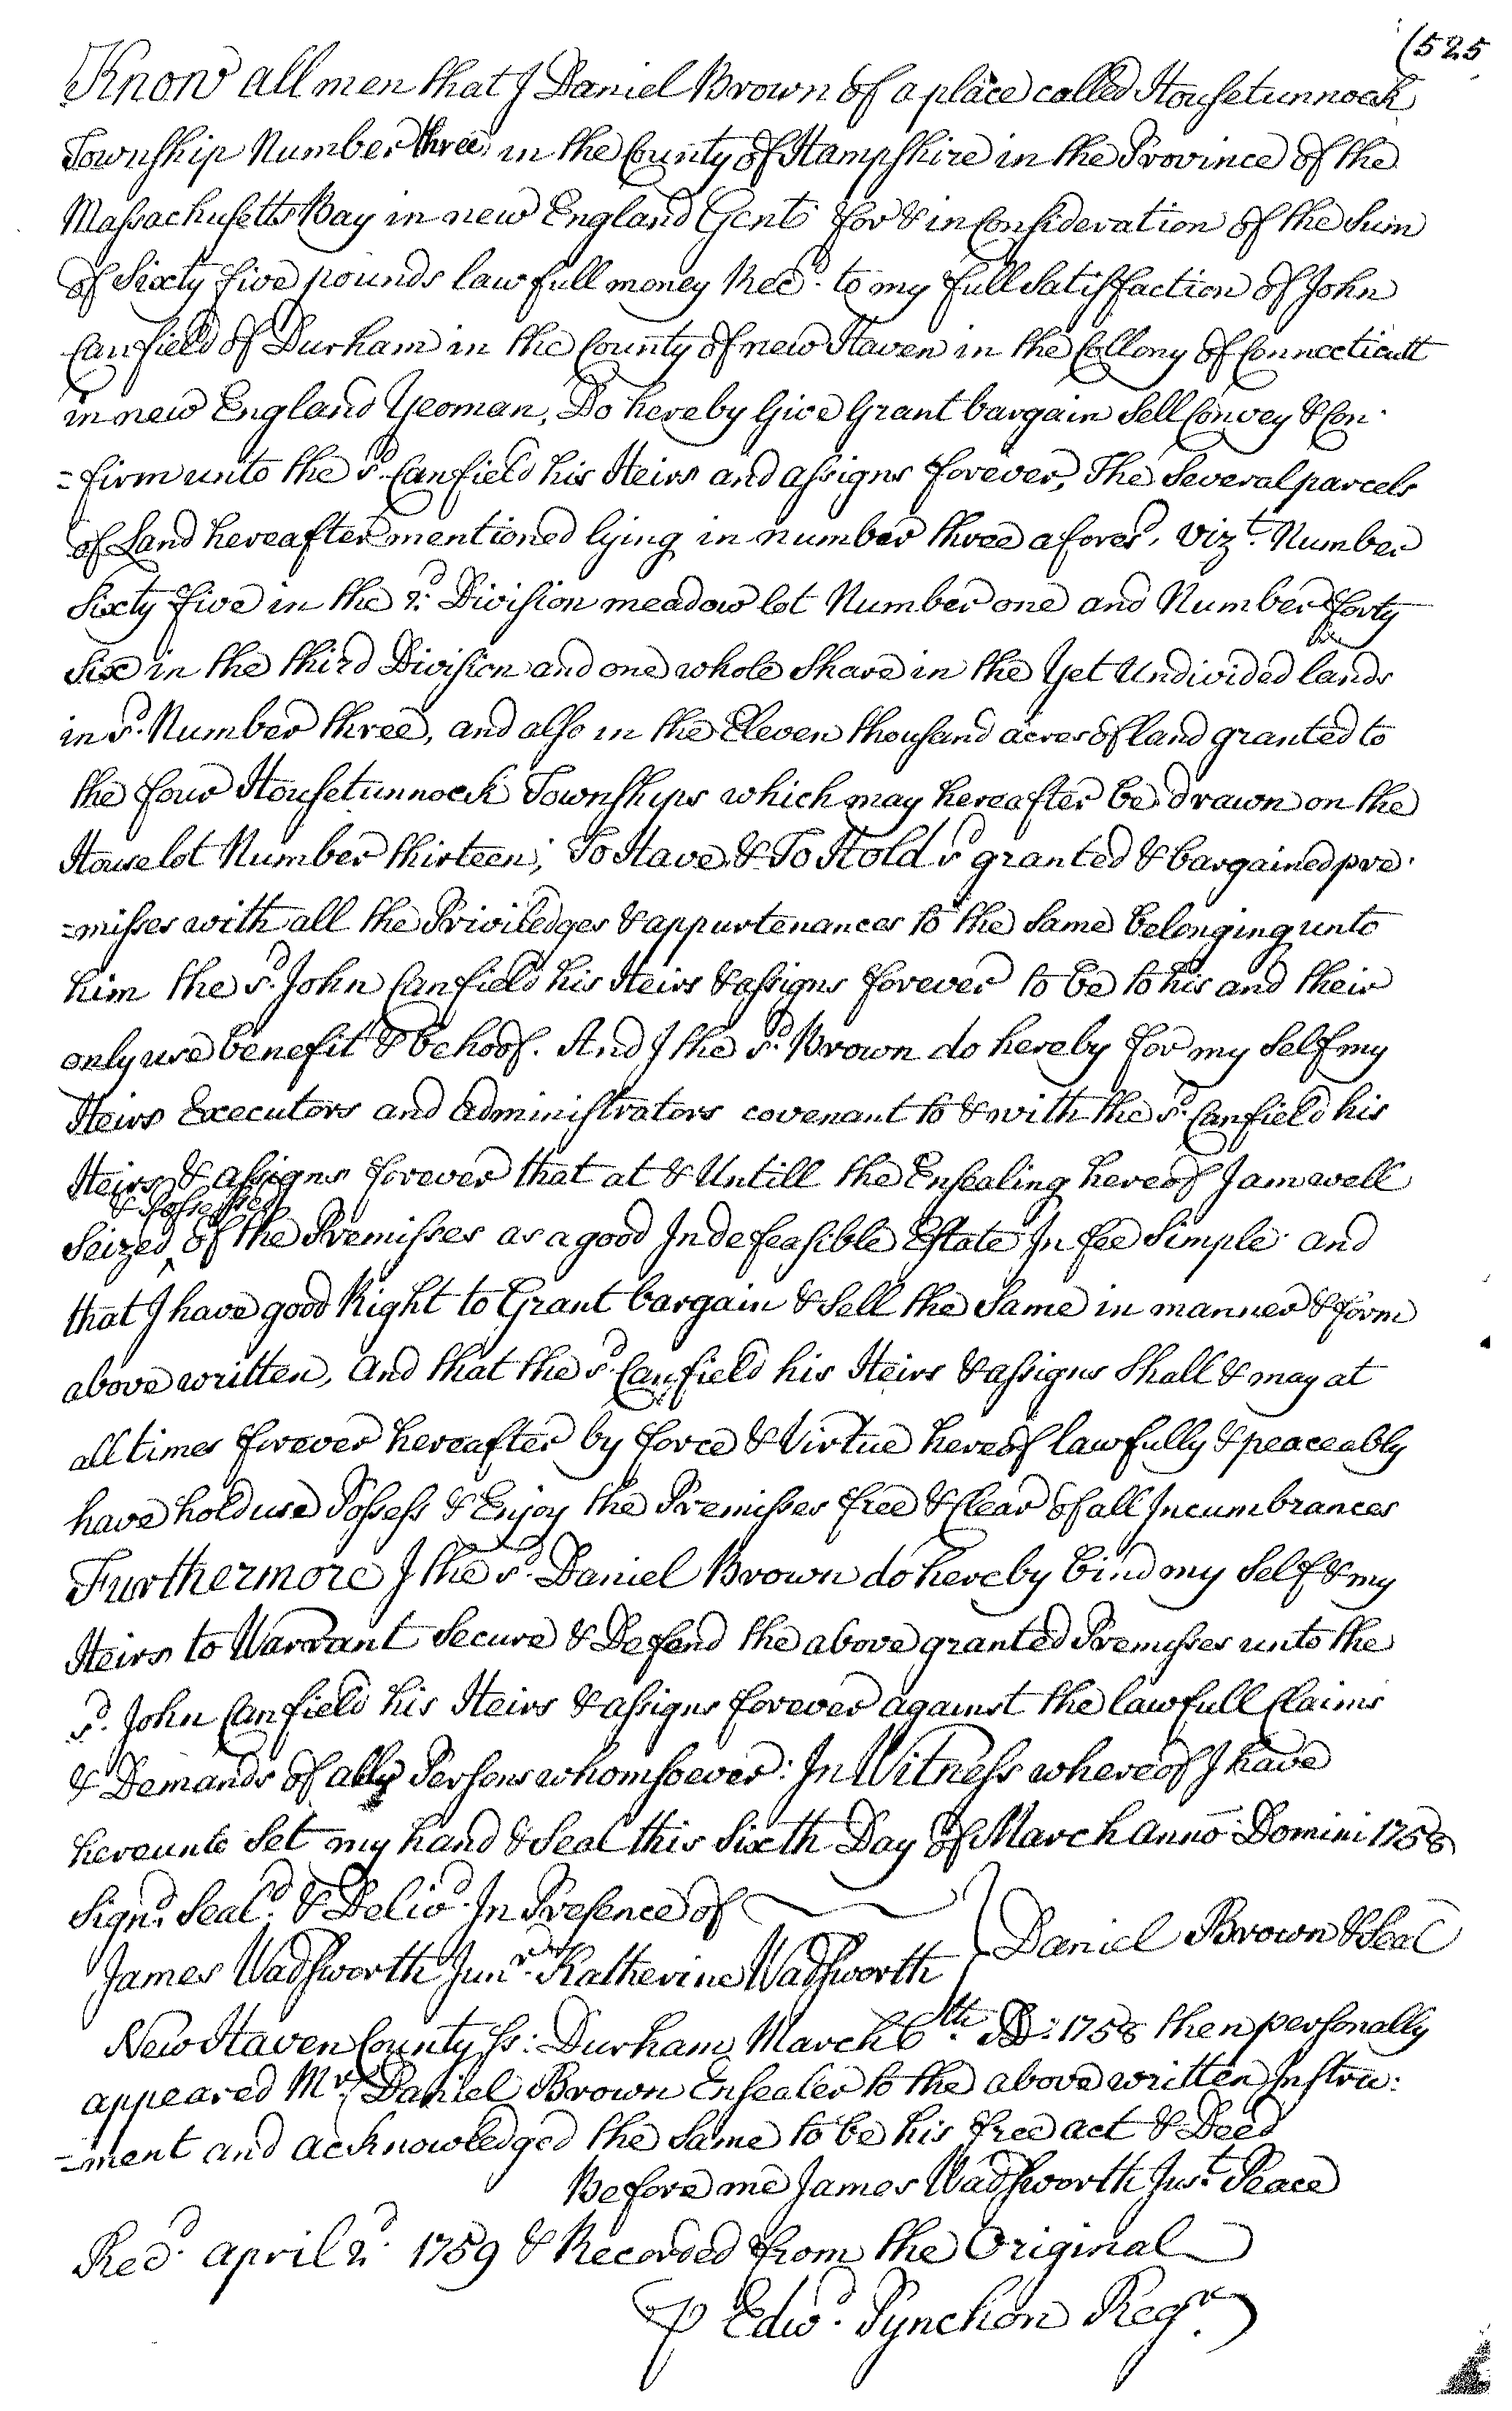 (525
Know all men that I Daniel Brown of a place called Housetunnock
Township Number three in the County of Hampshire in the Province of the
Massachusetts Bay in new England Gent. for & in Consideration of the Sum
of Sixty five pounds lawfull money Recd. to my full Satisfaction of John
Canfield of Durham in the County of new Haven in the Collony of Connecticutt
in new England Yeoman, Do hereby Give Grant bargain Sell Convey & Con-
=firm unto the sd. Canfield his Heirs and assigns forever, The Several parcels
of Land hereafter mentioned lying in number three aforesd. vizt. Number
Sixty five in the 2d. Division meadow lot Number one and Number forty
Six in the third Division and one whole Share in the Yet Undivided lands
in sd. Number three, and also in the Eleven thousand acres of land granted to
the four Housetunnock Townships which may hereafter be drawn on the
House lot Number thirteen; To Have & To Hold sd. granted & bargained pre-
=misses with all the Priviledges & appurtenances to the Same belonging unto
him the sd. John Canfield his Heirs & assigns forever to be to his and their
only use benefit & behoof. And I the sd. Brown do hereby for my Self my
Heirs Executors and administrators covenant to & with the sd. Canfield his
Heirs & assigns forever that at & Untill the Ensealing hereof I am well
& Possessed
Seized ^ of the Premisses as a good Indefeasible Estate In fee Simple and
that I have good Right to Grant bargain & Sell the Same in manner & form
above written, and that the sd. Canfield his Heirs & assigns Shall & may at
all times forever hereafter by force & Virtue hereof lawfully & peaceably
have hold use Possess & Enjoy the Premisses free & Clear of all Incumbrances
Furthermore I the sd. Daniel Brown do hereby bind my Self & my
Heirs to Warrant Secure & Defend the above granted Premisses unto the
sd. John Canfield his Heirs & assigns forever against the lawfull Claims
& Demands of all Persons whomsoever: In Witness whereof I have
hereunto Set my hand & Seal this Sixth Day of March anno Domini 1758
Signd. Seald. & Delivd. In Presence of
James Wadsworth Junr. Katherine Wadsworth } Daniel Brown & Seal
New Haven County ss: Durham March 6th. AD: 1758 then personally
appeared Mr. Daniel Brown Ensealer to the above written Instru:
=ment and acknowledged the Same to be his free act & Deed
Before me James Wadsworth Just. Peace
Recd. april 2d. 1759 & Recorded from the Original
℘ Edwd. Pynchon Regr.